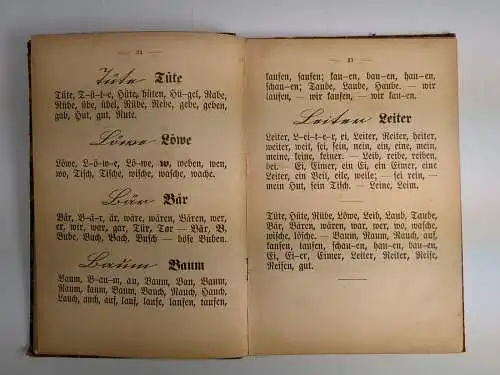 Tüte Tüte
Tüte, T-ü-t-e, Hüte, hüten, Hü-gel, Rabe,
Rübe, übe, übel, Rübe, Rebe, gebe, geben,
gab, Hut, gut, Rute.
Löwe Löwe
Löwe, L-ö-w-e, Lö-we, w, weben, wen,
wo, Tisch, Tische, wische, wasche, wache.
Bär Bär
Bär, B-ä-r, är, wäre, wären, Bären, wer,
er, wir, war, gar, Tür, Tor — Bär, B,
Bube, Buch, Bach, Busch — böse Buben.
Baum Baum
Baum, B-au-m, au, Baum, Bau, Baum,
Raum, kaum, Baum, Bauch, Rauch, Hauch,
Lauch, auch, auf, lauf, laufe, laufen, taufen,
kaufen, saufen; kau-en, bau-en, hau-en,
schau-en; Taube, Laube, Haube. — wir
laufen, — wir kaufen, — wir kau-en.
Leiter Leiter
Leiter, L-ei-t-e-r, ei, Leiter, Reiter, heiter,
weiter, weit, sei, sein, nein, ein, eine, mein,
meine, keine, feiner. — Leib, reibe, reiben,
bei. — Ei, Eimer, ein Ei, ein Eimer, eine
Leiter, ein Beil, eile, weile; — sei rein, —
mein Hut, sein Tisch. — Leine, Leim.
Tüte, Hüte, Rübe, Löwe, Leib, Laub, Taube,
Bär, Bären, wären, war, wer, wo, wasche,
wische, lösche. — Baum, Raum, Rauch, auf,
kaufen, taufen, schau-en, hau-en, bau-en,
Ei, Ei-er, Eimer, Leiter, Reiter, Reise,
Reisen, gut.